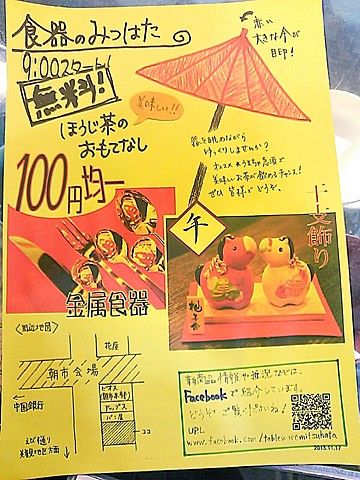 食器のみつはた
9:00スタート!
無料!
ほうじ茶の
おもてなし
赤い
大きな傘が
目印!
美味しい!!
器を眺めながら
ゆっくりしませんか?
美味しいお茶が飲めるチャンス!
ぜひ皆様でどうぞ。
100円均一
金属食器
午
干支飾り
<周辺地図>
花屋
朝市会場
中国銀行
ピオス
(朝市本部)
アップス
パン屋
ココ
えび通り
新商品情報や近況などは、
Facebookで紹介しています。
ご覧くださいね!
URL
www.facebook.com/tablewaremitsuhata
2013.11.17